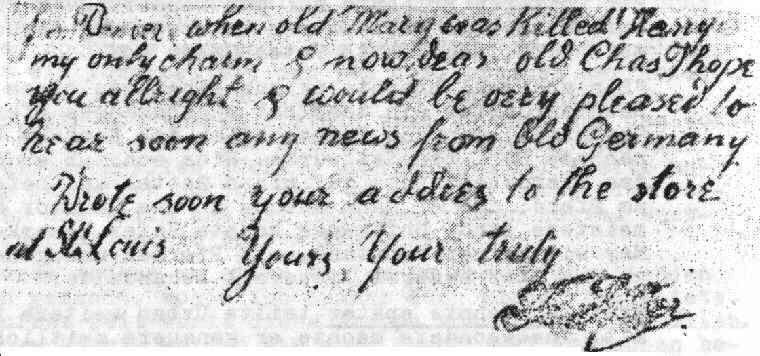 when old Mary was Killed Hany
my only charm & now dear old Chas I hope
you allright & would be very pleased to
hear soon any news from Old Germany
Wrote soon your addres to the store
at St. Louis Yours Your truly